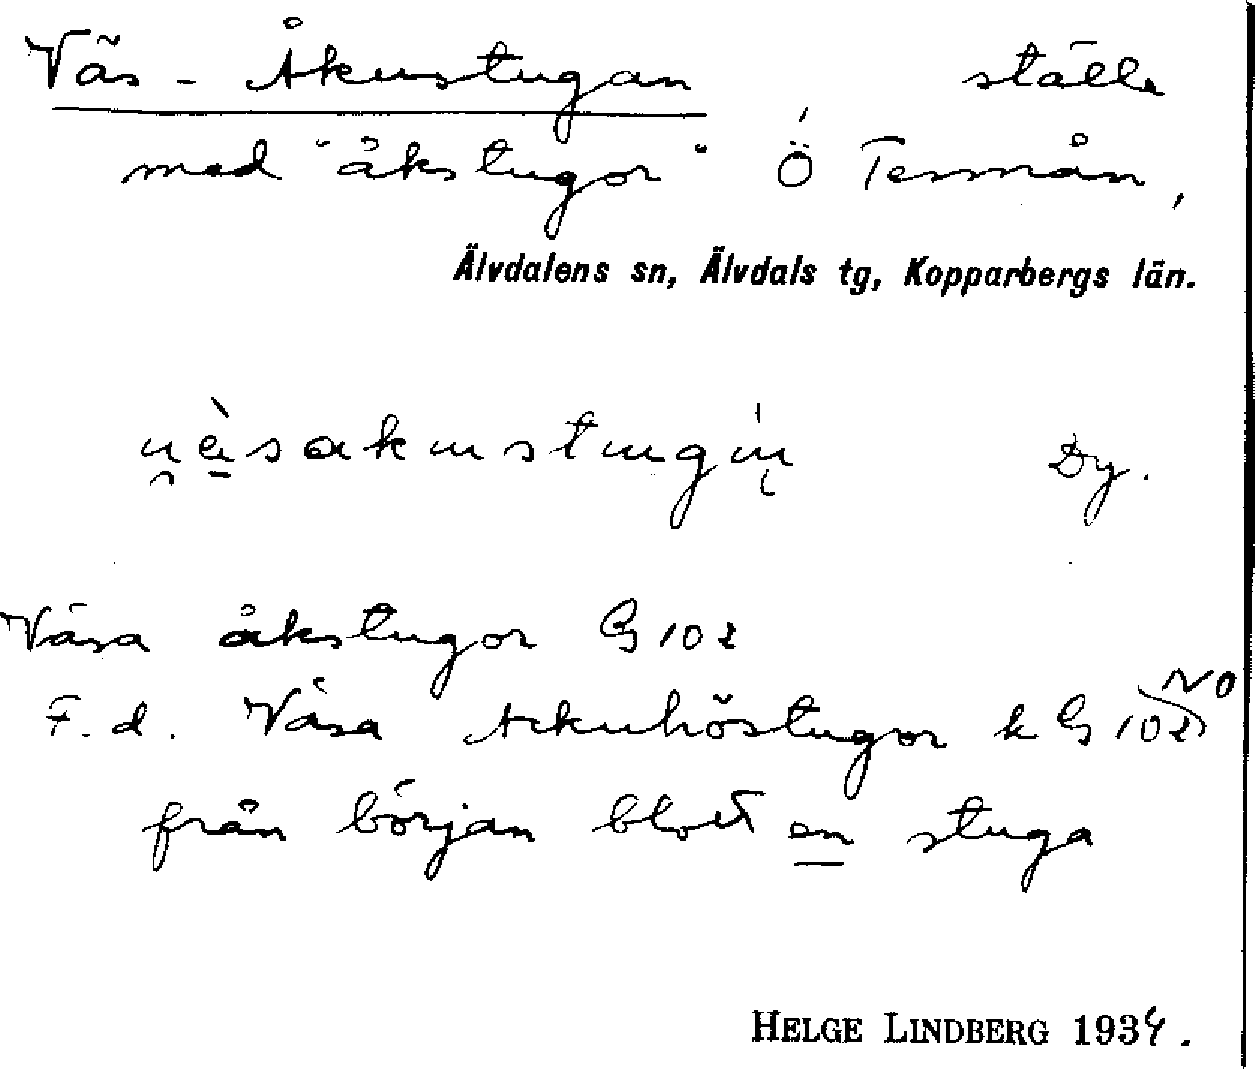 Väs - Åkustugan ställe
med "åkstugor" Ö Tennån,
Älvdalens sn, Älvdals tg, Kopparbergs län.
Dy.
Väsa åkstugor G 102
F. d. Väsa Arkuhöstugor k G 102 NO
från början blott en stuga
HELGE LINDBERG 1934.